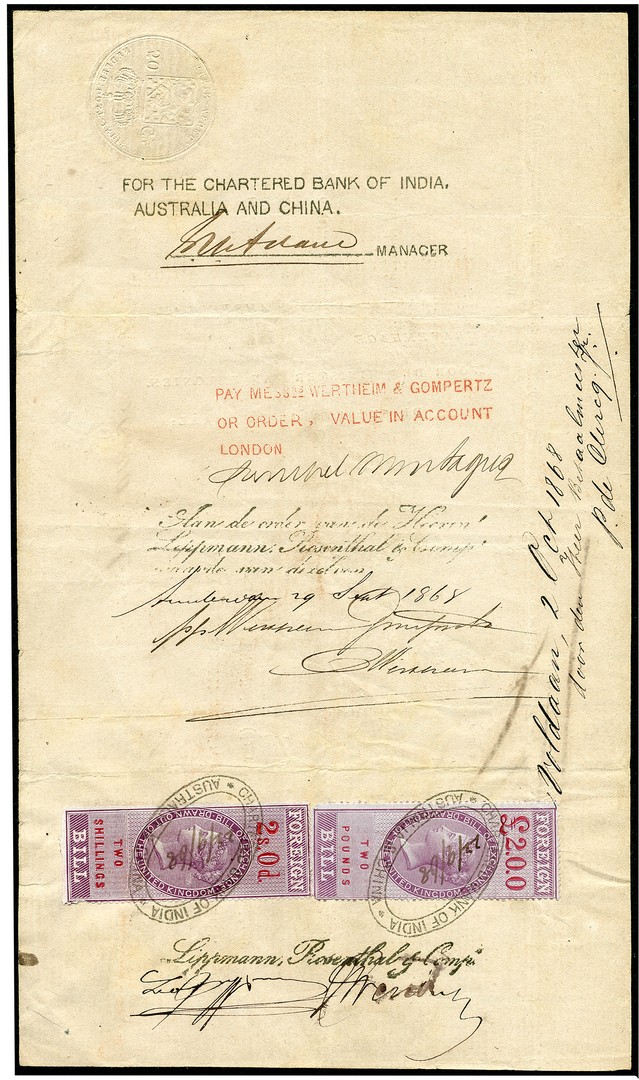 FOR THE CHARTERED BANK OF INDIA,
AUSTRALIA AND CHINA.
MANAGER
PAY MESSRS WERTHEIM & GOMPERTZ
OR ORDER, VALUE IN ACCOUNT
LONDON
Samuel Montague
Aan de order van de Heeren
Lippmann, Rosenthal & Comp.
waarde van dezelven
Amsterdam 29 Sept 1868
pp Wertheim Gompertz
Voldaan, 2 Oct 1868
door den Heer Betaalmeester
p. de Clercq Jr.
FOREIGN
2s.0d.
BILL OF EXCHANGE DRAWN OUT OF THE UNITED KINGDOM
TWO
SHILLINGS
BILL
CHARTERED BANK OF INDIA AUSTRALIA & CHINA
22/9/68
FOREIGN
£2.0.0
BILL OF EXCHANGE DRAWN OUT OF THE UNITED KINGDOM
TWO
POUNDS
BILL
CHARTERED BANK OF INDIA AUSTRALIA & CHINA
22/9/68
Lippmann, Rosenthal & Comp.